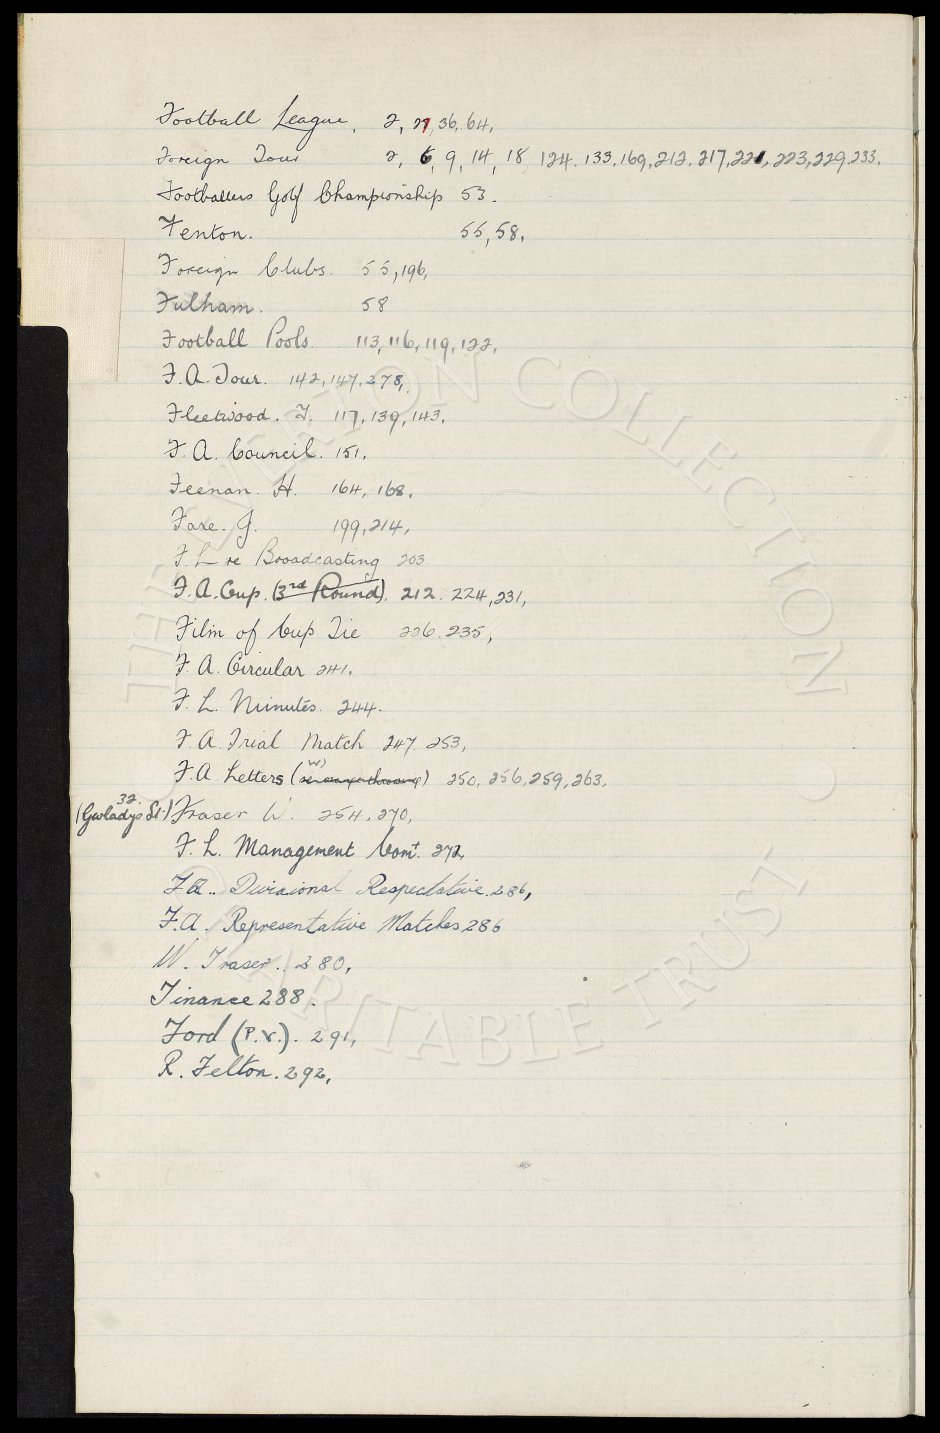 Football League, 2, 27, 36, 64,
Foreign Tour 2, 6, 9, 14, 18, 124, 133, 169, 212, 217, 221, 223, 229, 233,
Footballers Golf Championship 53.
Fenton. 55, 58,
Foreign Clubs. 55, 196,
Fulham. 58
Football Pools 113, 116, 119, 122,
F.A. Tour. 142, 147, 278,
Fleetwood. T. 117, 139, 143,
F.A. Council. 151,
Feenan. H. 164, 168,
Fare. J. 199, 214,
F.L re Broadcasting 203.
F.A. Cup. (3rd Round). 212. 224, 231,
Film of Cup Tie 226. 235,
F.A. Circular 241.
F.L. Minutes. 244.
F.A. Trial Match 247 253,
F.A. Letters ( ) 250, 256, 259, 263,
(32 Gwladys St.) Fraser W. 254, 270,
F.L. Management Comt. 272,
F.A.. Divisional Respectative. 286,
F.A. Representative Matches 286
W. Fraser.. 280,
Finance 288.
Ford (P.X.). 291,
R. Felton. 292,
THE EVERTON COLLECTION
CHARITABLE TRUST